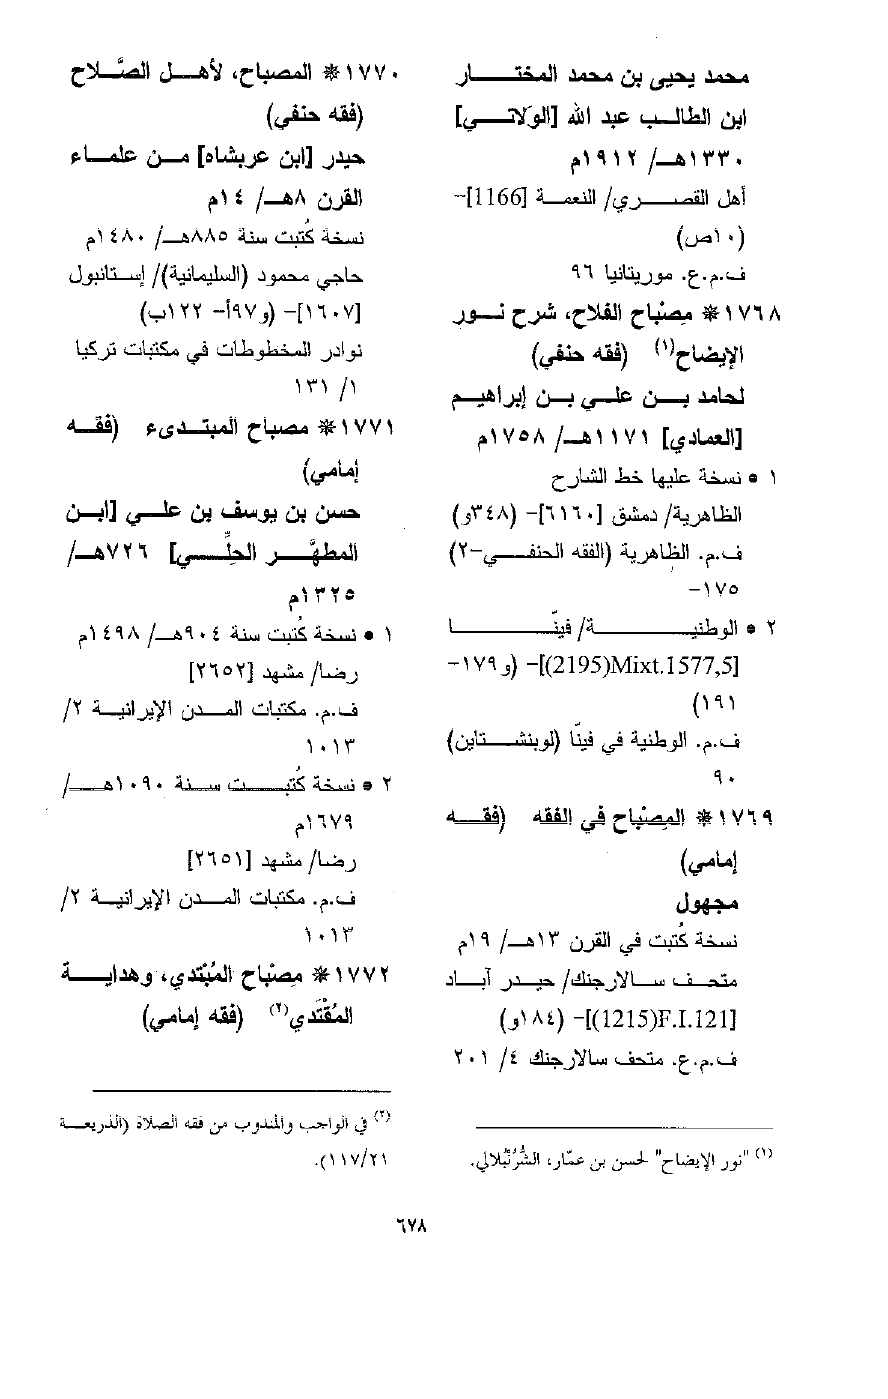 محمد يحيى بن محمد المختار
ابن الطالب عبد الله [الولاتي]
١٣٣٠هـ/ ١٩١٢م
أهل القصري/ النعمة [1166]-
(١٠ص)
ف.م.ع. موريتانيا ٩٦
١٧٦٨* مِصْباح الفلاح، شرح نور
الإيضاح(١) (فقه حنفي)
لحامد بن علي بن إبراهيم
[العمادي] ١١٧١هـ/ ١٧٥٨م
١ • نسخة عليها خط الشارح
الظاهرية/ دمشق [٦١٦٠]- (٣٤٨و)
ف.م. الظاهرية (الفقه الحنفي-٢)
١٧٥-
٢ • الوطنية/ فينّا
[Mixt.1577,5(2195)]- (و١٧٩-
١٩١)
ف.م. الوطنية في فينّا (لوبنشتاين)
٩٠
١٧٦٩* المِصْباح في الفقه (فقه
إمامي)
مجهول
نسخة كُتبت في القرن ١٣هـ/ ١٩م
متحف سالارجنك/ حيدر آباد
[F.I.121(1215)]- (١٨٤و)
ف.م.ع. متحف سالارجنك ٤/ ٢٠١
(١) "نور الإيضاح" لحسن بن عمّار، الشُّرُنْبُلالي.
١٧٧٠* المصباح، لأهل الصَّلاح
(فقه حنفي)
حيدر [ابن عربشاه] من علماء
القرن ٨هـ/ ١٤م
نسخة كُتبت سنة ٨٨٥هـ/ ١٤٨٠م
حاجي محمود (السليمانية)/ إستانبول
[١٦٠٧]- (و٩٧أ- ١٢٢ب)
نوادر المخطوطات في مكتبات تركيا
١/ ١٣١
١٧٧١* مصباح المبتدىء (فقه
إمامي)
حسن بن يوسف بن علي [ابن
المطهَّر الحلِّي] ٧٢٦هـ/
١٣٢٥م
١ • نسخة كُتبت سنة ٩٠٤هـ/ ١٤٩٨م
رضا/ مشهد [٢٦٥٢]
ف.م. مكتبات المدن الإيرانية ٢/
١٠١٣
٢ • نسخة كُتبت سنة ١٠٩٠هـ/
١٦٧٩م
رضا/ مشهد [٢٦٥١]
ف.م. مكتبات المدن الإيرانية ٢/
١٠١٣
١٧٧٢* مصْباح المُبْتدي، وهداية
المُقْتَدي(٢) (فقه إمامي)
(٢) في الواجب والمندوب من فقه الصلاة (الذريعة
١١٧/٢١).
٦٧٨